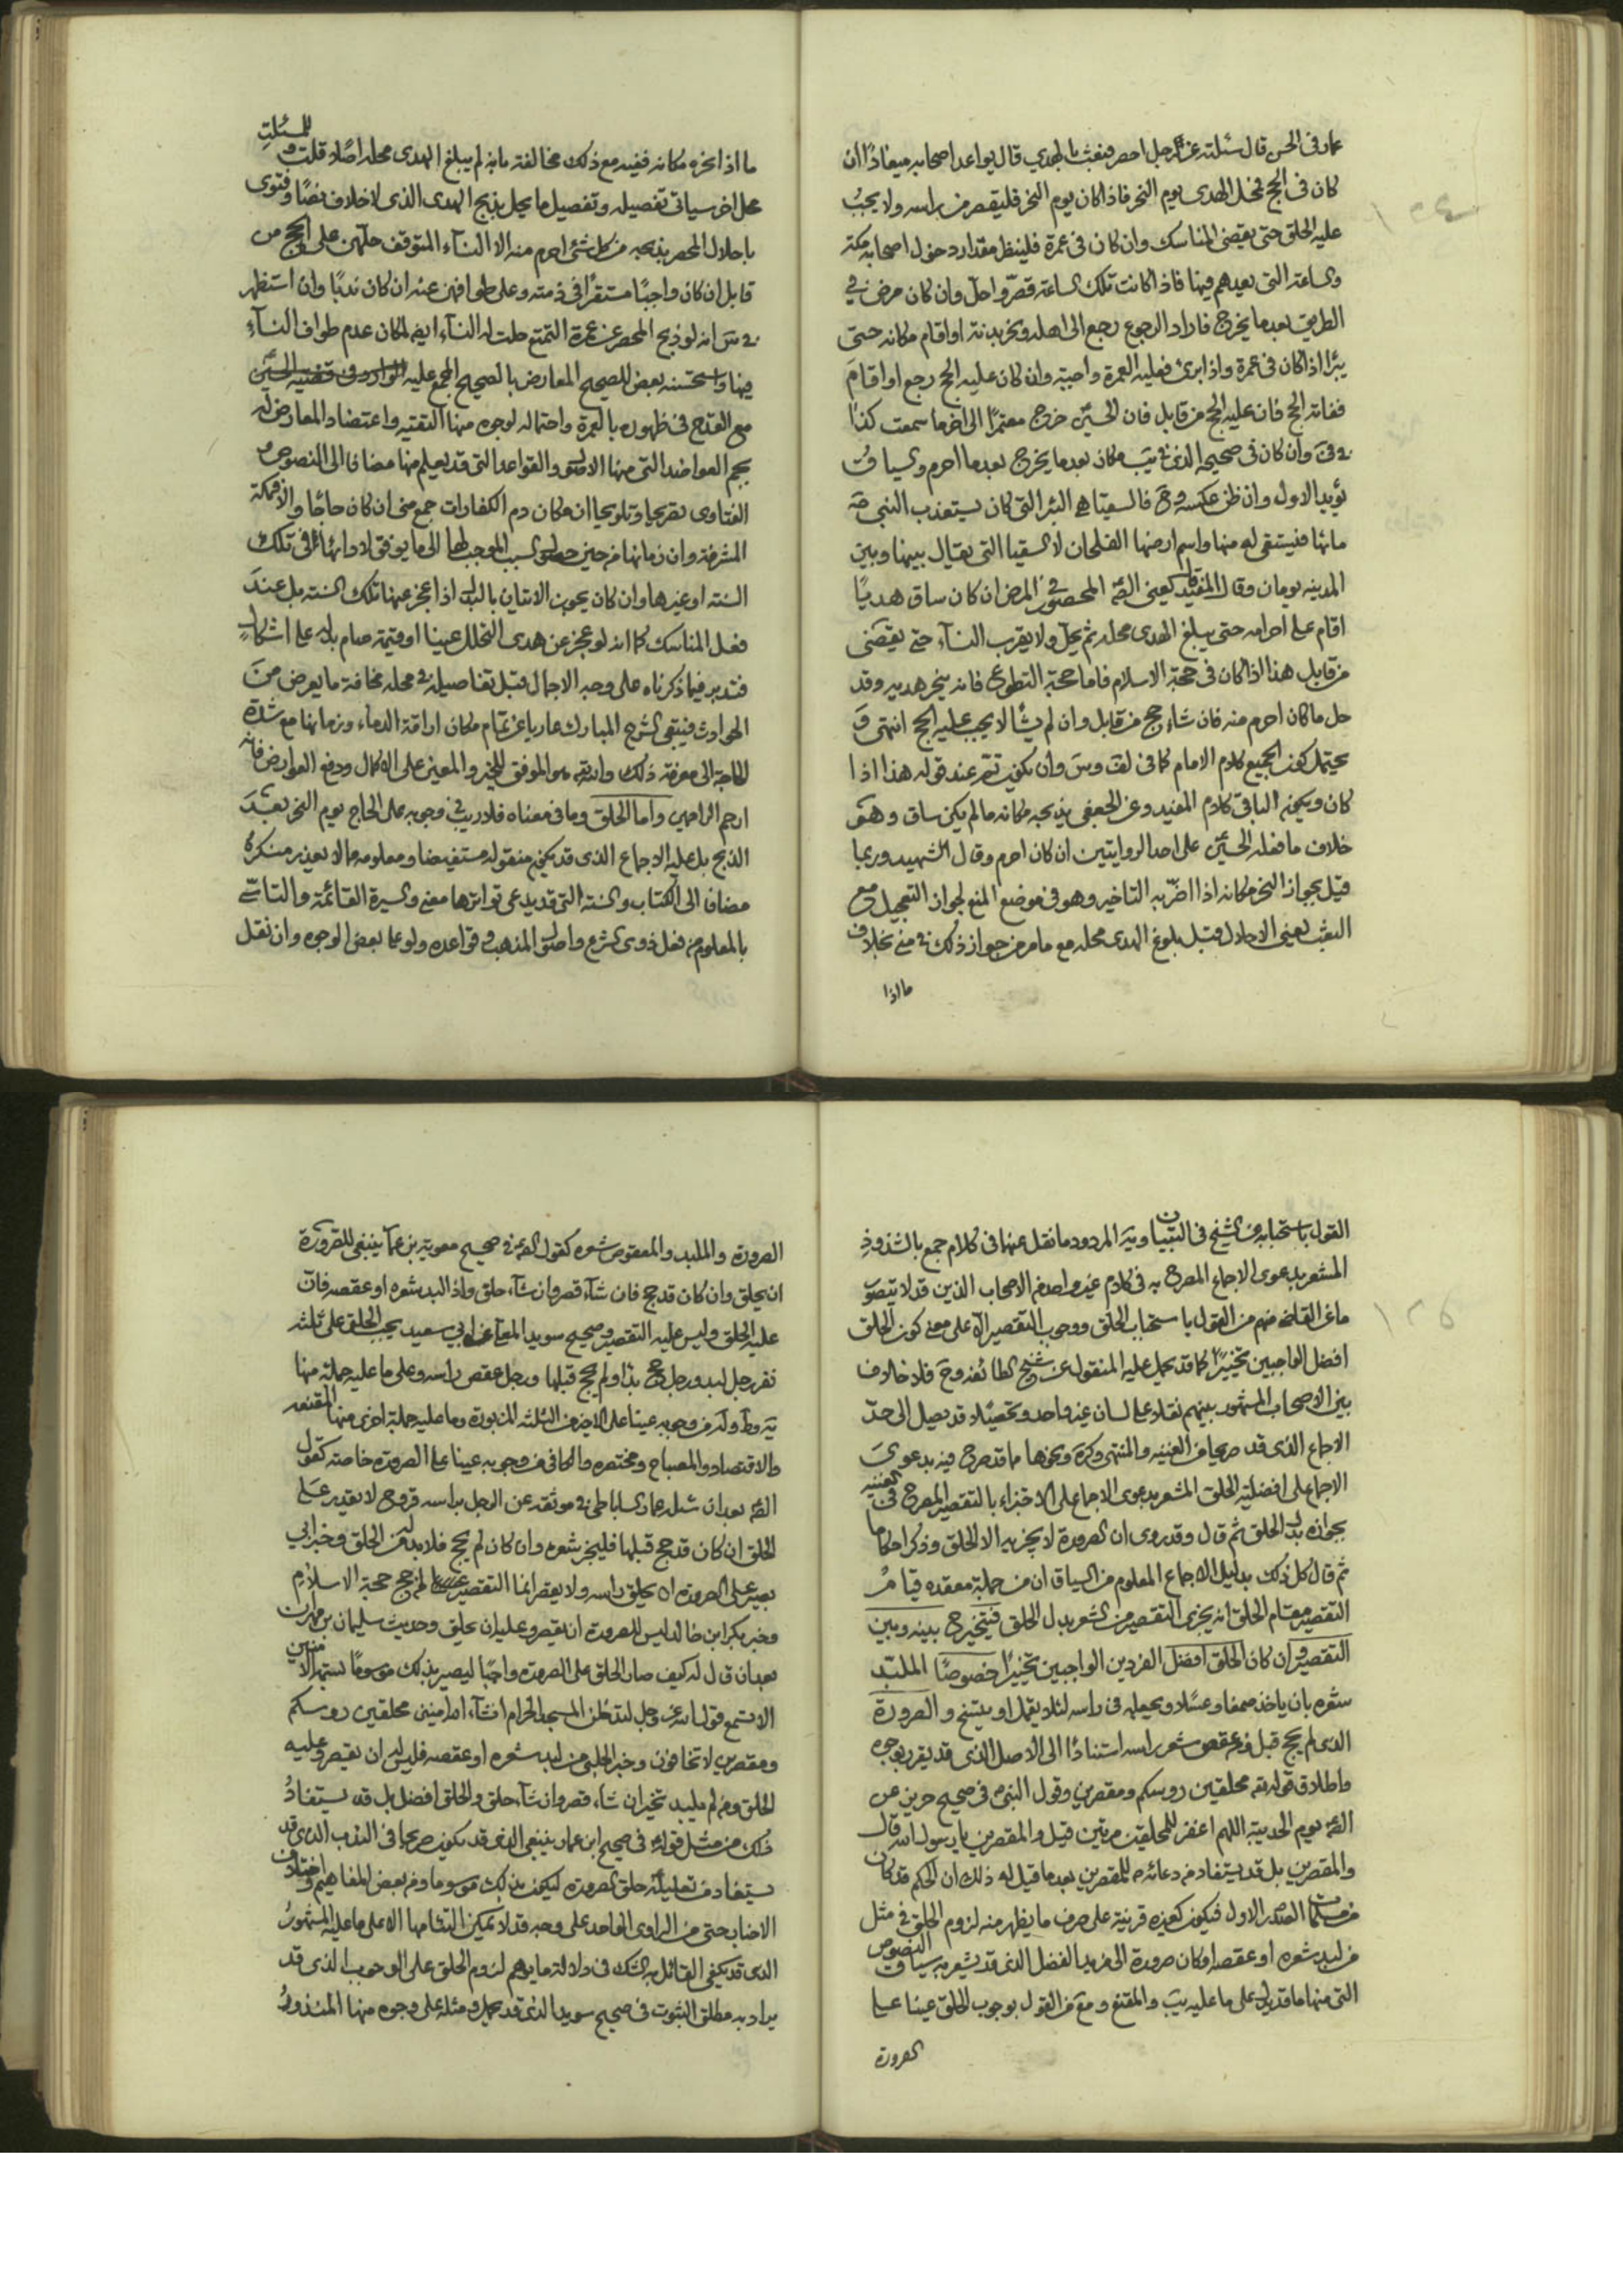 عمار في الحسن قال سئلته عن رجل احصر فبعث بالهدي قال يواعد اصحابه ميعادًا ان
كان في الحج فمحل الهدى يوم النحر فاذا كان يوم النحر فليقصر من راسه ولا يجب
عليه الحلق حتى يقضى المناسك وان كان في عمرة فلينظر مقدار دخول اصحابه مكة
والساعة التي يعدهم فيها فاذا كانت تلك الساعة قصر واحل وان كان مرض في
الطريق بعد ما يخرج فاراد الرجوع رجع الى اهله ونحر بدنة او اقام مكانه حتى
يبرأ اذا كان في عمرة واذا برئ فعليه العمرة واجبة وان كان عليه الحج رجع او اقام
ففاته الحج فان عليه الحج من قابل فان الحسين خرج معتمرًا الى اخر ما سمعت كذا
وان كان في صحيحه الذي في يب مكان بعد ما يخرج بعد ما احرم والسياق
يؤيد الاول وان ظن عكسه فالسقيا هي البئر التي كان يستعذب النبي ص
مائها فيستقى له منها واسم ارضها الفلحان لا السقيا التي يقال بينها وبين
المدينه يومان وقال المفيد يعنى الصم المحصور بالمرض ان كان ساق هديًا
اقام على احرامه حتى يبلغ الهدى محله ثم يحل ولا يقرب النسآء حتى يقضى
من قابل هذا اذا كان في حجة الاسلام فاما حجة التطوع فانه ينحر هديه وقد
حل ما كان احرم منه فان شاء حج من قابل وان لم يشا لا يجب عليه الحج انتهى و
يحتمل كون الجميع كلام الامام كما في لف وس وان يكون تتم عند قوله هذا اذا
كان ويكون الباقي كلام المفيد وعن الجعفى يذبحه مكانه ما لم يكن ساق وهو
خلاف ما فعله الحسين على احد الروايتين ان كان احرم وقال الشهيد وربما
قيل بجواز النحر مكانه اذا اضر به التاخير وهو في موضع المنع لجواز التعجيل مع
البعث يعنى الاحلال قبل بلوغ الهدى محله مع ما مر من جواز ذلك في منى بخلاف
ما اذا
ما اذا نحره مكانه ففيه مع ذلك مخالفته بانه لم يبلغ الهدى محله اصلا قلت و للمسئلة
محل اخر سياتى تفصيله وتفصيل ما يحل بذبح الهدى الذى لا خلاف نصًا وفتوى
باحلال المحصر بذبحه من كل شئ احرم منه الا النسآء المتوقف حلهن على الحج من
قابل ان كان واجبًا مستقرًا في ذمته وعلى طوافهن عنه ان كان ندبًا وان استظهر
في س انه لو ذبح المحصر عن عمرة التمتع حلت له النسآء ايضا لمكان عدم طواف النسآء
فيها واستحسنه بعض للصحيح المعارض بالصحيح المجمع عليه الوارد في قضية الحسين
مع القدح في ظهوره بالعمرة واحتماله لوجوه منها التقية واعتضاد المعارض له
بجم العواضد التى منها الاصول والقواعد التى قد يعلم منها مضافا الى النصوص و
الفتاوى تصريحا وتلويحا ان مكان دم الكفارات جمع منى ان كان حاجًا والا فمكة
المشرفة وان زمانها من حين حصول السبب الموجب لها الى ما يوفق لادائها في تلك
السنة او غيرها وان كان يجوز الاتيان بالبدل اذا عجز عنها تلك السنة بل عند
فعل المناسك كما انه لو عجز عن هدى التحلل عينا او قيمة صام بدله على اشكال
فتدبر فيما ذكرناه على وجه الاجمال قبل تفاصيله في محله مخافة ما يعرض من
الحوادث فيبقى الشرح المبارك عاريا عن تمام مكان اراقة الدماء وزمانها مع شدة
الحاجة الى معرفة ذلك والله هو الموفق للخير والمعين على الاكمال ودفع العوارض فانه
ارحم الراحمين واما الحلق وما في معناه فلا ريب في وجوبه على الحاج يوم النحر بعد
الذبح بل عليه الاجماع الذى قد يكون منقوله مستفيضا ومعلومه مما لا يعذر منكره
مضافا الى الكتاب والسنة التى قد يدعى تواترها معنى والسيرة القائمة والتاسى
بالمعلوم من فعل ذوى الشرع واصول المذهب وقواعده ولو عما بعض الوجوه وان نقل
القول باستحبابه عن الشيخ في التبيان ويه المردود ما نقل عنهما في كلام جمع بالشذوذ
المشعر بدعوى الاجماع المصرح به في كلام غير واحد من الاصحاب الذين قد لا يتصور
ما عن القاضى منهم من القول باستحباب الحلق ووجوب التقصير الا على معنى كون الحلق
افضل الواجبين تخييرًا كما قد يحمل عليه المنقول عن شيخ الطائفة وح فلا خلاف
بين الاصحاب المشهور بينهم نقلا على لسان غير واحد وتحصيلا قد يصل الى حد
الاجماع الذى قد صريحا في الغنيه والمنتهى وكرة ونحوها ما قد صرح فيه بدعوى
الاجماع على افضلية الحلق المشعر بدعوى الاجماع على الاجتزاء بالتقصير المصرح في الغنيه
بجوازه بدل الحلق ثم قال وقد روى ان الصرورة لا يجزيه الا الحلق وذكر احكاما
ثم قال كل ذلك بدليل الاجماع المعلوم من السياق ان من جملة معقده قيام
التقصير مقام الحلق انه يجزى التقصير من الشعر بدل الحلق فيتخير ح بينه وبين
التقصير وان كان الحلق افضل الفردين الواجبين تخييرًا خصوصًا الملبد
شعره بان ياخذ صمغا وعسلا ويجعله في راسه لئلا يقمل او يتسخ والصرورة
الذى لم يحج قبل ومن عقص شعر راسه استنادًا الى الاصل الذى قد يقرر بوجوه
واطلاق قوله تعه محلقين روسكم ومقصرين وقول النبى في صحيح حريز عن
الصم يوم الحديبية اللهم اغفر للمحلقين مرتين قيل والمقصرين يا رسول الله قال
والمقصرين بل قد يستفاد من دعائه للمقصرين بعد ما قيل له ذلك ان الحكم قد كان
الصدر الاول فيكون كغيره قرينة على صرف ما يظهر منه لزوم الحلق في مثل
من لبد شعره او عقصه او كان صرورة الى مزيد الفضل الذى قد يشعر به سياق النصوص
التى منها ما قد يدل على ما عليه يب والمقنع و من القول بوجوب الحلق عينا على
الصرورة
الصرورة والملبد والمعقوص شعره كقول الصم في صحيح معوية بن عمار ينبغى للصرورة
ان يحلق وان كان قد حج فان شآء قصر وان شآء حلق واذا لبد شعره او عقصه فان
عليه الحلق وليس عليه التقصير وصحيح سويد عن ابى سعيد يجب الحلق على ثلثة
نفر رجل لبد ورجل حج بدأ ولم يحج قبلها ورجل عقص راسه وعلى ما عليه جملة منها
يه وط وله من وجوبه عينا على الاخيرين الثلثة المزبورة وما عليه جملة اخرى منها المقنعه
والاقتصاد والمصباح ومختصره والكافى من وجوبه عينا على الصرورة خاصة كقول
الصم بعد ان سئله عمار الساباطى في موثقه عن الرجل براسه قروح لا يقدر على
الحلق ان كان قد حج قبلها فليجز شعره وان كان لم يحج فلا بد له من الحلق وخبر ابى
بصير على الصرورة ان يحلق راسه ولا يقصر انما التقصير لمن حج حجة الاسلام
وخبر بكر ابن خالد ليس للصرورة ان يقصر وعليه ان يحلق وحديث سليمان بن مهران
بعد ان قال له كيف صار الحلق على الصرورة واجبًا ليصير بذلك موسومًا بسمة الامنين
الا تسمع قول الله عز وجل لتدخلن المسجد الحرام انشآء الله امنين محلقين روسكم
ومقصرين لا تخافون وخبر الحلبى من لبد شعره او عقصه فليس له ان يقصر وعليه
الحلق ومن لم يلبد تخير ان شآء قصر وان شآء حلق والحلق افضل بل قد يستفاد
ذلك من مثل قوله في صحيح ابن عمار ينبغى الذى قد يكون صريحا في الندب الذى قد
يستفاد من تعليله حلق الصرورة ليكون بذلك موسوما ومن بعض المفاهيم واختلاف
الاخبار حتى من الراوى الواحد على وجه قد لا يمكن التئامها الا على ما عليه المشهور
الذى قد يكفى القائل به الشك في دلالة ما يوهم لزوم الحلق على الوجوب الذى قد
يراد به مطلق الثبوت في صحيح سويد الذى قد يحمل ومثله على وجوه منها المنذور